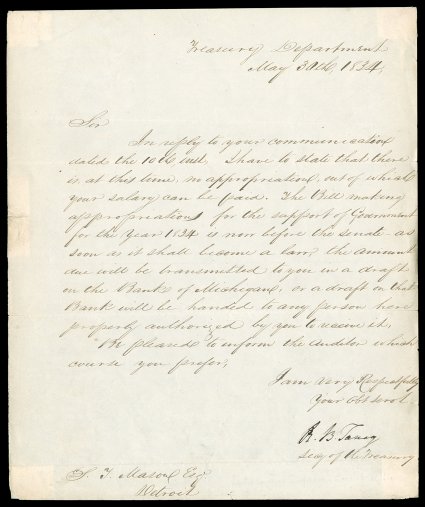 Treasury Department
May 30th, 1834,
Sir
In reply to your communication
dated the 10th inst. I have to state that there
is at this time, no appropriation, out of which
your salary can be paid. The Bill making
appropriations for the support of Government
for the year 1834 is now before the senate as
soon as it shall become a law, the amount
due will be transmitted to you in a draft
on the Bank of Michigan, or a draft on that
Bank will be handed to any person here
properly authorized by you to receive it,
Be pleased to inform the Auditor which
course you prefer,
I am very Respectfully
Your Obt Servt
R. B. Taney
Secy of the Treasury
S. T. Mason Esq
Detroit